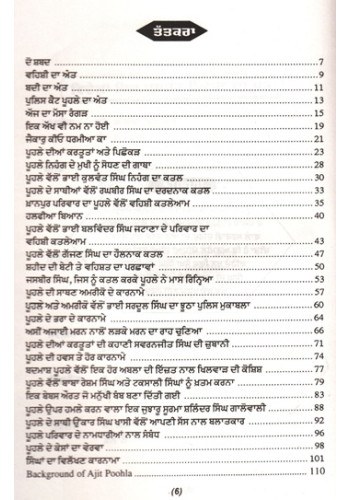 ਤੱਤਕਰਾ
ਦੋ ਸ਼ਬਦ 7
ਵਹਿਸ਼ੀ ਦਾ ਅੰਤ 9
ਬਦੀ ਦਾ ਅੰਤ 11
ਪੁਲਿਸ ਕੈਟ ਪੂਹਲੇ ਦਾ ਅੰਤ 13
ਅੱਜ ਦਾ ਮੱਸਾ ਰੰਗੜ 15
ਇਕ ਅੱਖ ਵੀ ਨਮ ਨਾ ਹੋਈ 19
ਜੈਕਾਰੁ ਕੀਓ ਧਰਮੀਆ ਕਾ 21
ਪੂਹਲੇ ਦੀਆਂ ਕਰਤੂਤਾਂ ਅਤੇ ਪਿਛੋਕੜ 23
ਪੂਹਲੇ ਨਿਹੰਗ ਦੇ ਮੁਖੀ ਨੂੰ ਸੋਧਣ ਦੀ ਗਾਥਾ 28
ਪੂਹਲੇ ਵੱਲੋਂ ਭਾਈ ਕੁਲਵੰਤ ਸਿੰਘ ਨਿਹੰਗ ਦਾ ਕਤਲ 30
ਪੂਹਲੇ ਦੇ ਸਾਥੀਆਂ ਵੱਲੋਂ ਰਘਬੀਰ ਸਿੰਘ ਦਾ ਦਰਦਨਾਕ ਕਤਲ 33
ਖ਼ਾਨਪੁਰ ਪਰਿਵਾਰ ਦਾ ਪੂਹਲੇ ਵੱਲੋਂ ਵਹਿਸ਼ੀ ਕਤਲੇਆਮ 35
ਹਲਫੀਆ ਬਿਆਨ 40
ਪੂਹਲੇ ਵੱਲੋਂ ਭਾਈ ਬਲਵਿੰਦਰ ਸਿੰਘ ਜਟਾਣਾ ਦੇ ਪਰਿਵਾਰ ਦਾ
ਵਹਿਸ਼ੀ ਕਤਲੇਆਮ 43
ਪੂਹਲੇ ਵੱਲੋਂ ਗੱਜਣ ਸਿੰਘ ਦਾ ਹੌਲਨਾਕ ਕਤਲ 47
ਸ਼ਹੀਦ ਦੀ ਬੇਟੀ ਤੇ ਵਹਿਸ਼ਤ ਦਾ ਪਰਛਾਵਾਂ 50
ਜਸਬੀਰ ਸਿੰਘ, ਜਿਸ ਨੂੰ ਕਤਲ ਕਰਕੇ ਪੂਹਲੇ ਨੇ ਮਾਸ ਰਿੰਨ੍ਹਿਆ 53
ਪੂਹਲੇ ਦੀ ਸਾਬਣ ਅਮਰੀਕੋ ਦੇ ਕਾਰਨਾਮੇ 54
ਪੂਹਲੇ ਅਤੇ ਅਮਰੀਕੋ ਵੱਲੋਂ ਭਾਈ ਸਰਦੂਲ ਸਿੰਘ ਦਾ ਝੂਠਾ ਪੁਲਿਸ ਮੁਕਾਬਲਾ 60
ਪੂਹਲੇ ਦੇ ਭਰਾ ਦੇ ਕਾਰਨਾਮੇ 64
ਅਸੀਂ ਅਜਾਈਂ ਮਰਨ ਨਾਲੋਂ ਲੜਕੇ ਮਰਨ ਦਾ ਰਾਹ ਚੁਣਿਆ 66
ਪੂਹਲੇ ਦੀਆਂ ਕਰਤੂਤਾਂ ਦੀ ਕਹਾਣੀ ਸਵਰਨਜੀਤ ਸਿੰਘ ਦੀ ਜ਼ੁਬਾਨੀ 71
ਪੂਹਲੇ ਦੀ ਹਵਸ ਤੇ ਹੋਰ ਕਾਰਨਾਮੇ 74
ਬਦਮਾਸ਼ ਪੂਹਲੇ ਵੱਲੋਂ ਇਕ ਹੋਰ ਅਬਲਾ ਦੀ ਇੱਜ਼ਤ ਨਾਲ ਖਿਲਵਾੜ ਦੀ ਕੋਸ਼ਿਸ਼ 77
ਪੂਹਲੇ ਵੱਲੋਂ ਬਾਬਾ ਰੇਸ਼ਮ ਸਿੰਘ ਅਤੇ ਟਕਸਾਲੀ ਸਿੰਘਾਂ ਨੂੰ ਖ਼ਤਮ ਕਰਨਾ 79
ਇਕ ਬੇਬਸ ਔਰਤ ਜੋ ਮਨੁੱਖੀ ਬੰਬ ਬਣਾ ਦਿੱਤੀ ਗਈ 83
ਪੂਹਲੇ ਉਪਰ ਹਮਲੇ ਕਰਨ ਵਾਲਾ ਇਕ ਜੁਝਾਰੂ ਸੂਰਮਾ ਸ਼ਲਿੰਦਰ ਸਿੰਘ ਗਾਲੋਵਾਲੀ 88
ਪੂਹਲੇ ਦੇ ਸਾਥੀ ਉਂਕਾਰ ਸਿੰਘ ਖਾਸੀ ਵੱਲੋਂ ਆਪਣੀ ਸੱਸ ਨਾਲ ਬਲਾਤਕਾਰ 92
ਪੂਹਲੇ ਪਰਿਵਾਰ ਦੇ ਨਾਮਧਾਰੀਆਂ ਨਾਲ ਸੰਬੰਧ 96
ਪੂਹਲੇ ਦੇ ਕੇਸਾਂ ਦਾ ਵੇਰਵਾ 98
ਸਿੰਘਾਂ ਦਾ ਵਿਲੱਖਣ ਕਾਰਨਾਮਾ 101
Background of Ajit Poohla 110
(6)